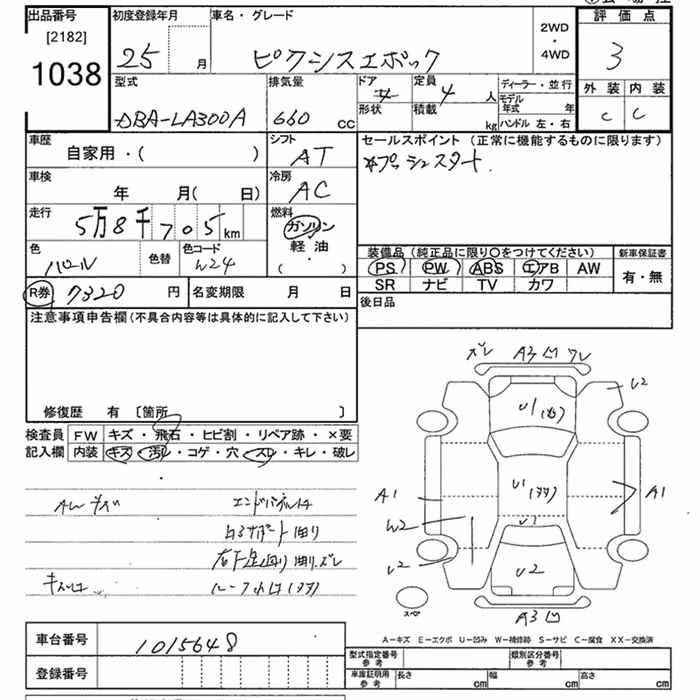 出品番号 初度登録年月 車名・グレード 2WD・4WD 評価点
[2182]
1038
25 月 ピクシスエポック 3
型式 排気量 ドア 定員 4人 ディーラー・並行 外装 内装
DBA-LA300A 660 CC 形状 積載 kg モデル年式 年 C C
ハンドル 左・右
車歴 シフト セールスポイント (正常に機能するものに限ります)
自家用・( ) AT プッシュスタート
車検 冷房
年 月( 日) AC
走行 燃料
5万8千705km ガソリン
軽油
・( )
色 色替 色コード
パール W24
装備品 (純正品に限り〇をつけてください) 新車保証書
PS PW ABS エアB AW 有・無
SR ナビ TV カワ
R券 7320 円 名変期限 月 日 後日品
注意事項申告欄 (不具合内容等は具体的に記入して下さい)
修復歴 有 〔箇所 〕
検査員 FW キズ・飛石・ヒビ割・リペア跡・×要
記入欄 内装 キズ・汚レ・コゲ・穴・スレ・キレ・破レ
ズレ A3凹ワレ
U2
U1
A1 U1 A1
W2
U2 U1
U2
スペア
A3凹
A-キズ E-エクボ U-凹み W-補修跡 S-サビ C-腐食 XX-交換済
車台番号 1015648
登録番号
型式指定番号 参考 類別区分番号 参考
車庫証明用 参考 長さ cm 幅 cm 高さ cm